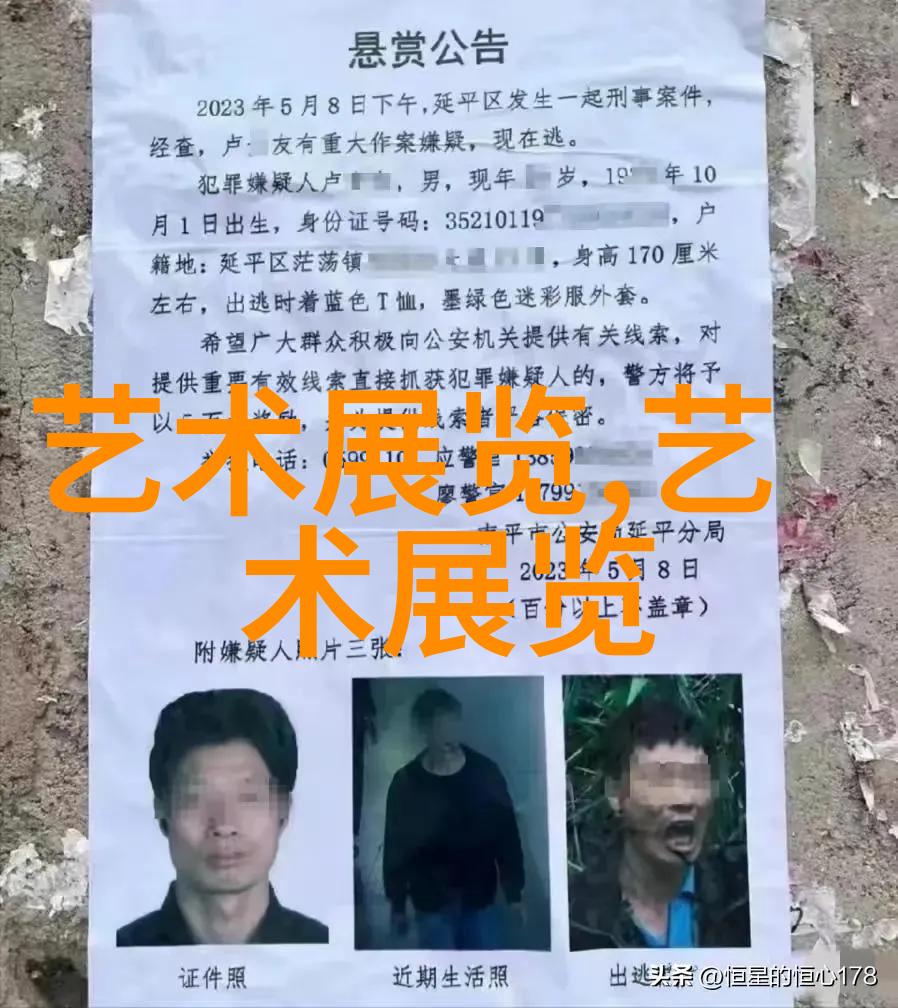 悬赏公告
2023年5月8日下午，延平区发生一起刑事案件，
经查，卢 友有重大作案嫌疑，现在逃。
犯罪嫌疑人卢 ，男，现年 岁，19 年10
月1日出生，身份证号码：35210119 ，户
籍地：延平区茫荡镇 ，身高170厘米
左右，出逃时着蓝色T恤，墨绿色迷彩服外套。
希望广大群众积极向公安机关提供有关线索，对
提供重要有效线索直接抓获犯罪嫌疑人的，警方将予
以 密。
艺术展览,艺
电话： 应警
廖警官
平市公安 延平分局
术展览
2023年5月8日
以上 盖章）
附嫌疑人照片三张：
证件照
近期生活照
出逃
头条 @恒星的恒心178